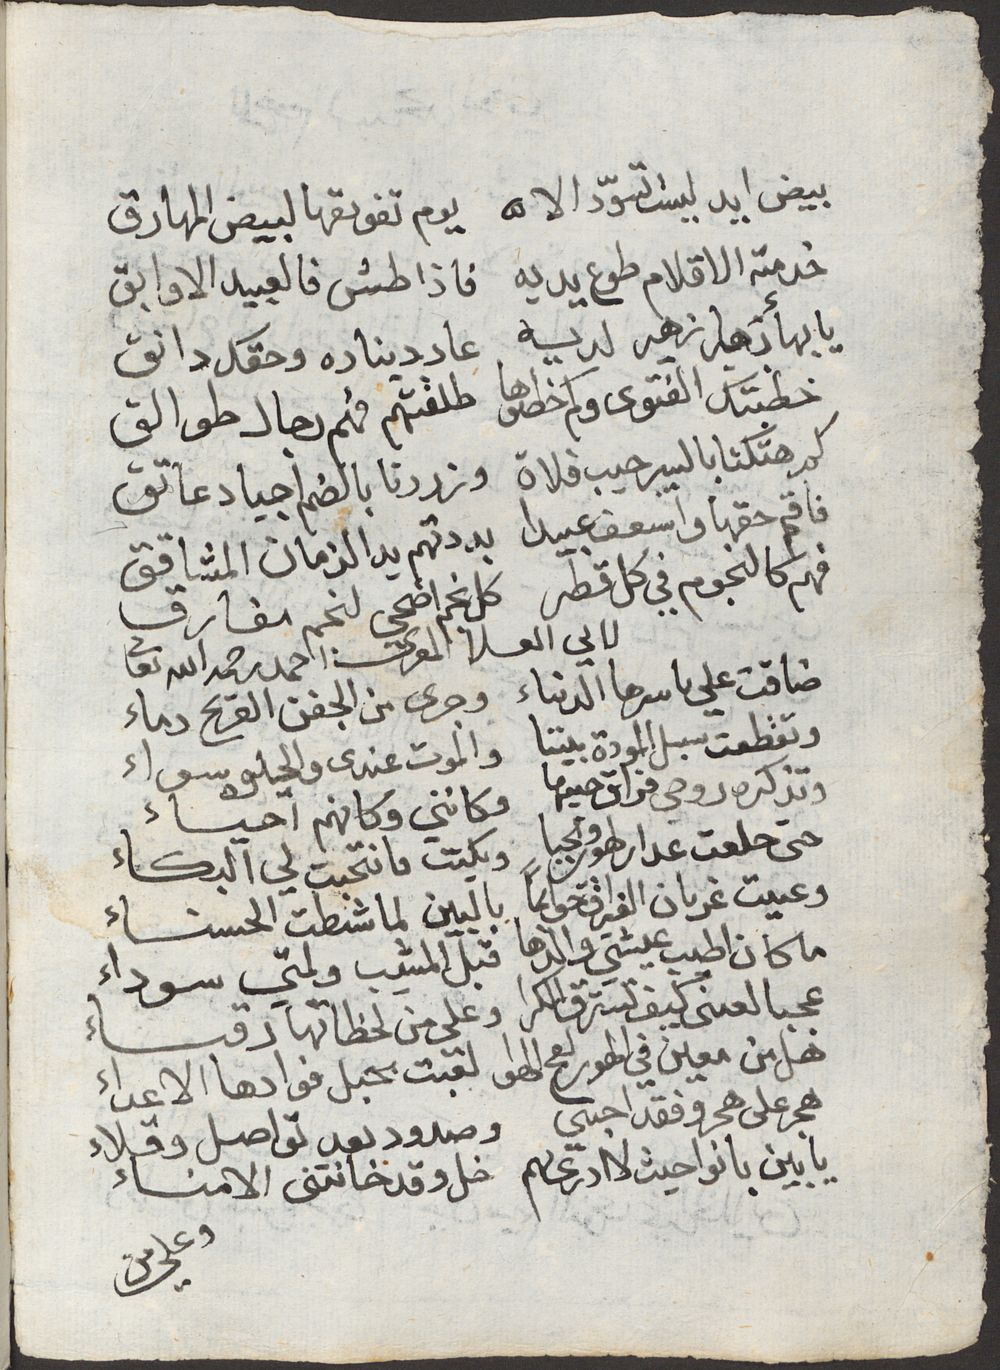 بيض ايد ليست تسوّد الا يوم تفويقها لبيض المهارق
خدمته الاقلام طوع يديه فاذا طشن فالعبيد الاوابق
يا بهاءً زهير لديه عاد ديناره وحقك دانق
خطبتك الفتوى وكم خطبوها طلقتهم فهم رجال طوالق
كم هتكنا بالسير جيب فلاة وزررنا بالضم اجياد عاتق
فاقم حقها واسعف عبيدا بددتهم يد الزمان المشاقق
فهم كالنجوم في كل قطر كل نجم اضحى لنجم مفارق
لابي العلا المعري احمد رحمه الله تعا
ضاقت علي باسرها الدنياء وجرى من الجفن القريح دماء
وتقطعت سبل المودة بيننا والموت عندي والحياة سواء
وتذكرت روحي فراق حبيبها فكانني وكانهم احياء
حتى خلعت عذار وبكيت فانتحبت لي البكاء
وعيت غربان الفراق بالبين لما شطت الحسناء
ما كان اطيب عيشتي والذها قبل المشيب ولمتي سوداء
عجبا لعيني كيف تسترق الكرا وعلي من لحظاتها رقباء
هل من معين في الهوى لعبت بحبل فوادها الاعداء
هجر على هجر وفقد احبتي وصدود بعد تواصل وقلاء
يا بين بانوا حيث لا ادري بهم خل وقد خانتني الامناء
وعلي من